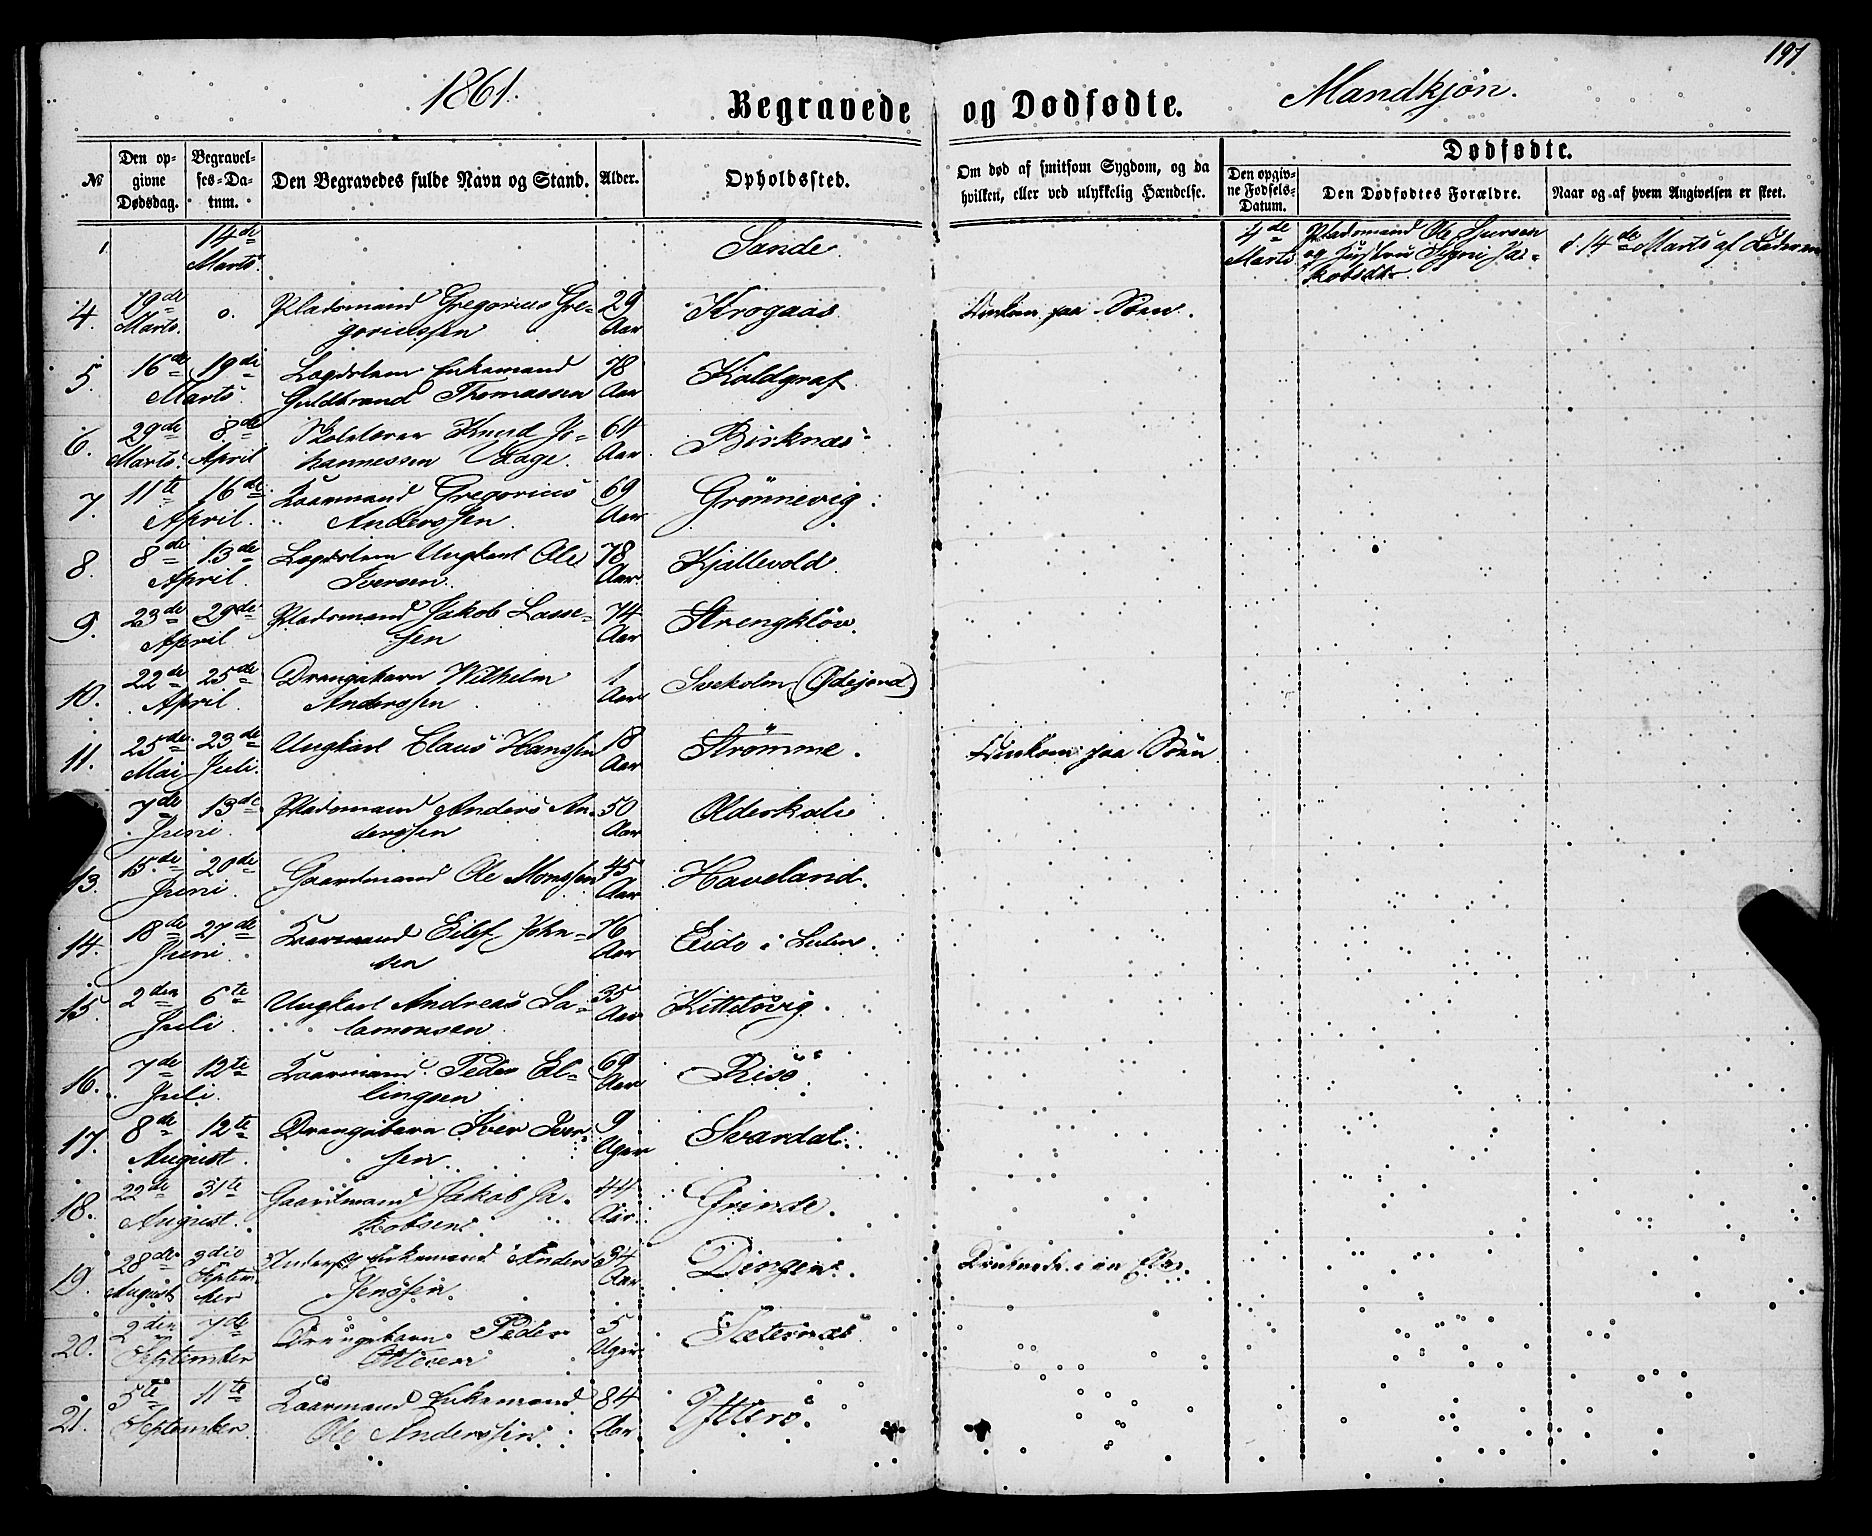 197
1861.
Begravede og Dødfødte.
Mandkjøn.
№
Den opgivne Dødsdag.
Begravelses-Datum.
Den Begravedes fulde Navn og Stand.
Alder.
Opholdssted.
Om død af smitsom Sygdom, og da hvilken, eller ved ulykkelig Hændelse.
Dødfødte.
Den opgivne Fødsels-Datum.
Den Dødfødtes Forældre.
Naar og af hvem Angivelsen er skeet.
1 14de Marts. Sande 4de Marts Pladsmand Ole og Hustru Jakobsdtr. d. 14de Marts af Faderen
4. 19de Marts. o. Pladsmand Gregorius Gregoriussen 29 Aar Krogaas Omkom paa Søen.
5. 16de 19de Marts. Lægdslem Enkemand Guldbrand Thomassen 78 Aar Koldgraf
6. 29de Marts. 8de April Skolelærer Knud Johannessen 64 Aar. Birknæs
7. 11te 16de April. Kaarmand Gregorius Anderssen. 69 Aar Grønnevig
8. 8de 13de April. Lægdslem Ungkarl Ole Iversen. 78 Aar. Kjallevold
9. 23de 29de April Pladsmand Jakob Lassesen 74 Aar Strengkløv.
10. 22de 25de April. Drengebarn Wilhelm Anderssen 1 Aar Svekolm (Ødejord)
11. 25de Mai 23de Juli. Ungkarl Claus Hanssen 18 Aar Strømme. Omkom paa Søen
7de 13de Juni. Pladsmand Anders Anderssen 50 Aar Olderkale
13. 15de 20de Juni. Gaardmand Ole Monssen 45 Aar Haveland.
14. 18de 27de Juni. Kaarmand Eilef Johnsen 76 Aar Eide i
15. 2den 6te Juli. Ungkarl Andreas Salamonsen. 35 Aar Kittelsvig.
16. 7de 12te Juli. Kaarmand Peder Ellingsen 69 Aar Risø.
17. 8de 12te August. Drengebarn Iver Iversen. 9 Uger Svardal.
18. 22de 31te August. Gaardmand Jakob Jakobsen. 44 Aar. Grinde.
19. 28de August 3die September Enkemand Anders Jenssen. 34 Aar. Dingen. Druknede i en Elv.
20. 2den 7de September Drengebarn Peder Ottesen 5 Uger. Sæternæs
21. 5te 11te September. Kaarmand Enkemand Ole Anderssen. 84 Aar. Ytterø.